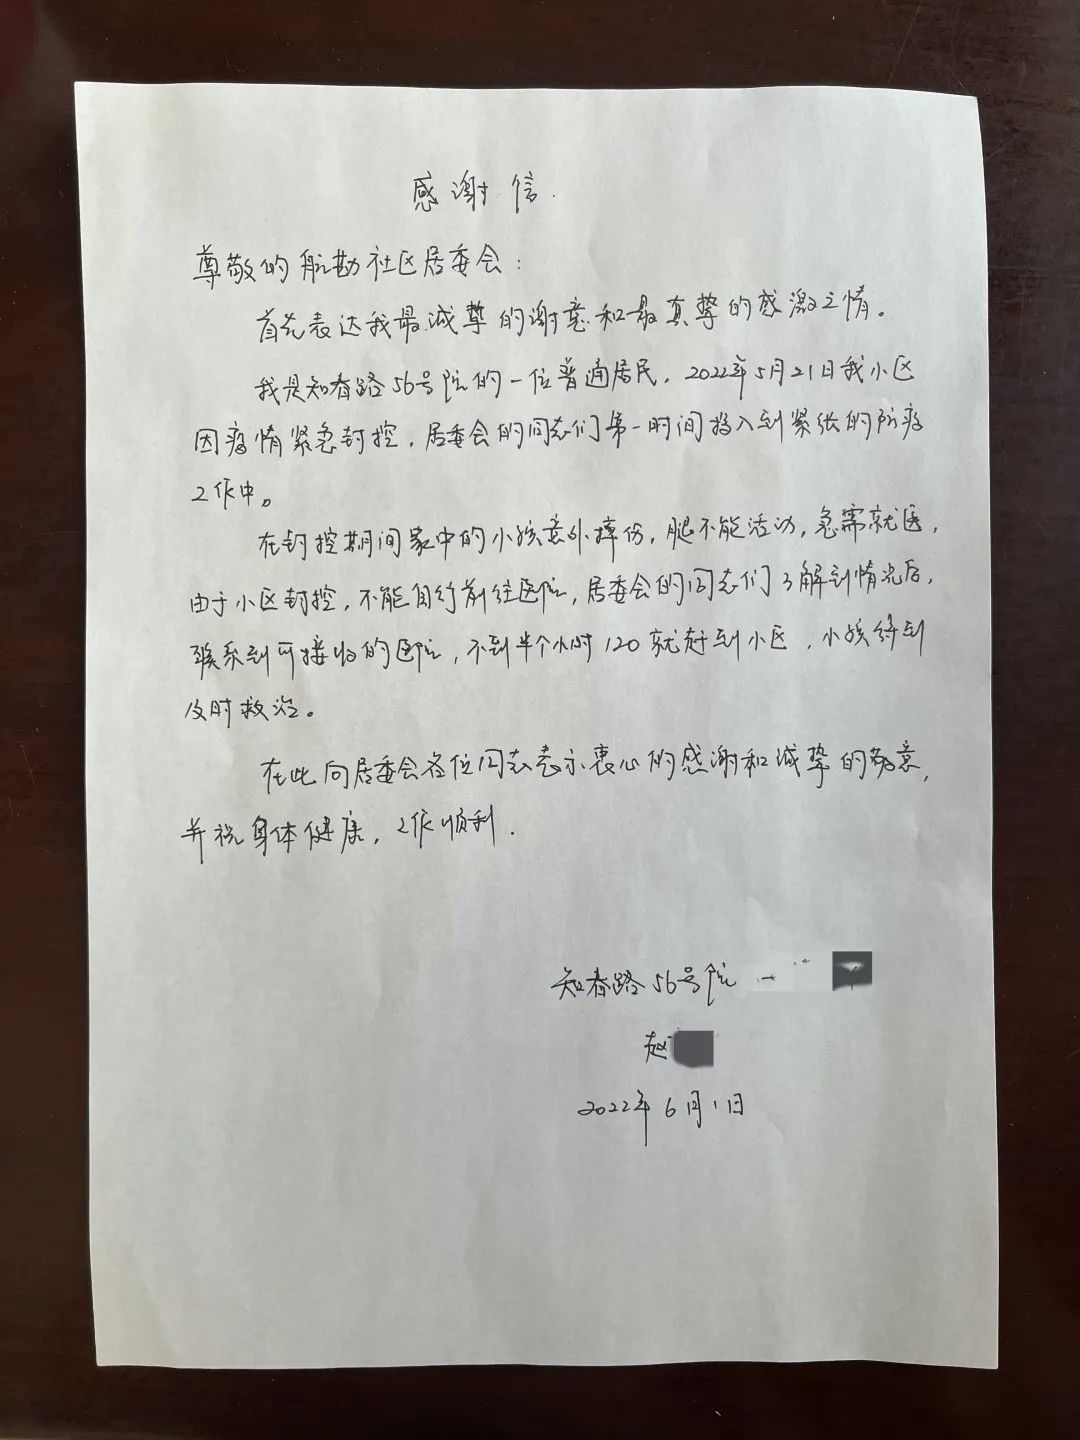 感谢信.
尊敬的航勘社区居委会：
首先表达我最诚挚的谢意和最真挚的感激之情。
我是知春路56号院的一位普通居民，2022年5月21日我小区
因疫情紧急封控，居委会的同志们第一时间投入到紧张的防疫
工作中。
在封控期间家中的小孩意外摔伤，腿不能活动，急需就医，
由于小区封控，不能自行前往医院，居委会的同志们了解到情况后，
联系到可接收的医院，不到半个小时120就赶到小区，小孩得到
及时救治。
在此向居委会各位同志表示衷心的感谢和诚挚的敬意，
并祝身体健康，工作顺利.
知春路56号院
赵
2022年6月1日